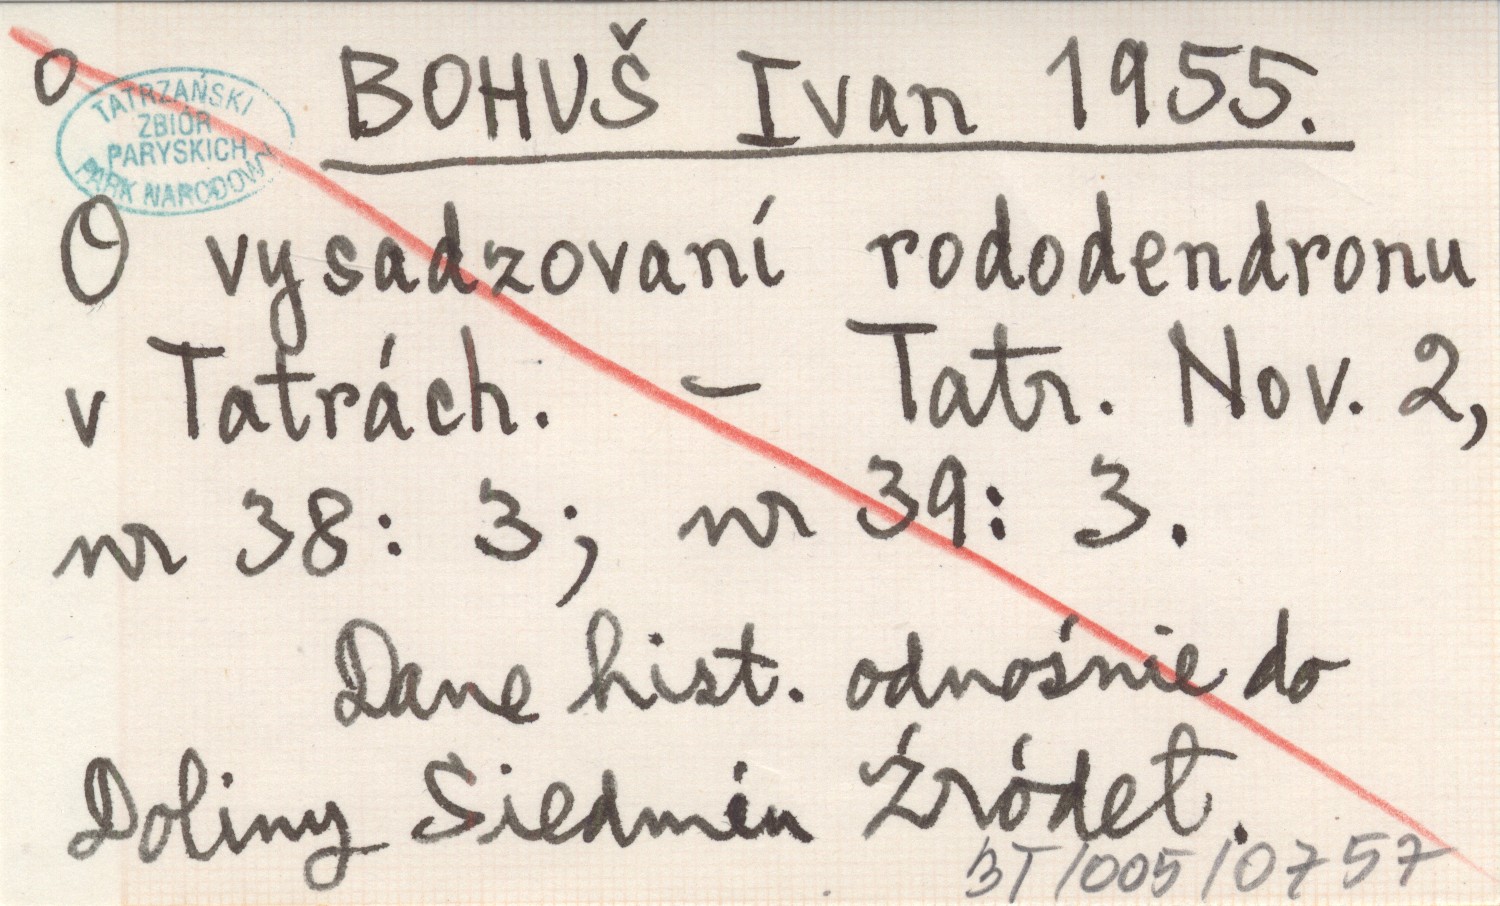 o
TATRZAŃSKI
ZBIÓR
PARYSKICH
PARK NARODOWY
BOHUŠ Ivan 1955.
O vysadzovaní rododendronu
v Tatrách. – Tatr. Nov. 2,
nr 38: 3; nr 39: 3.
Dane hist. odnośnie do
Doliny Siedmiu Źródeł.
BT/005/0757